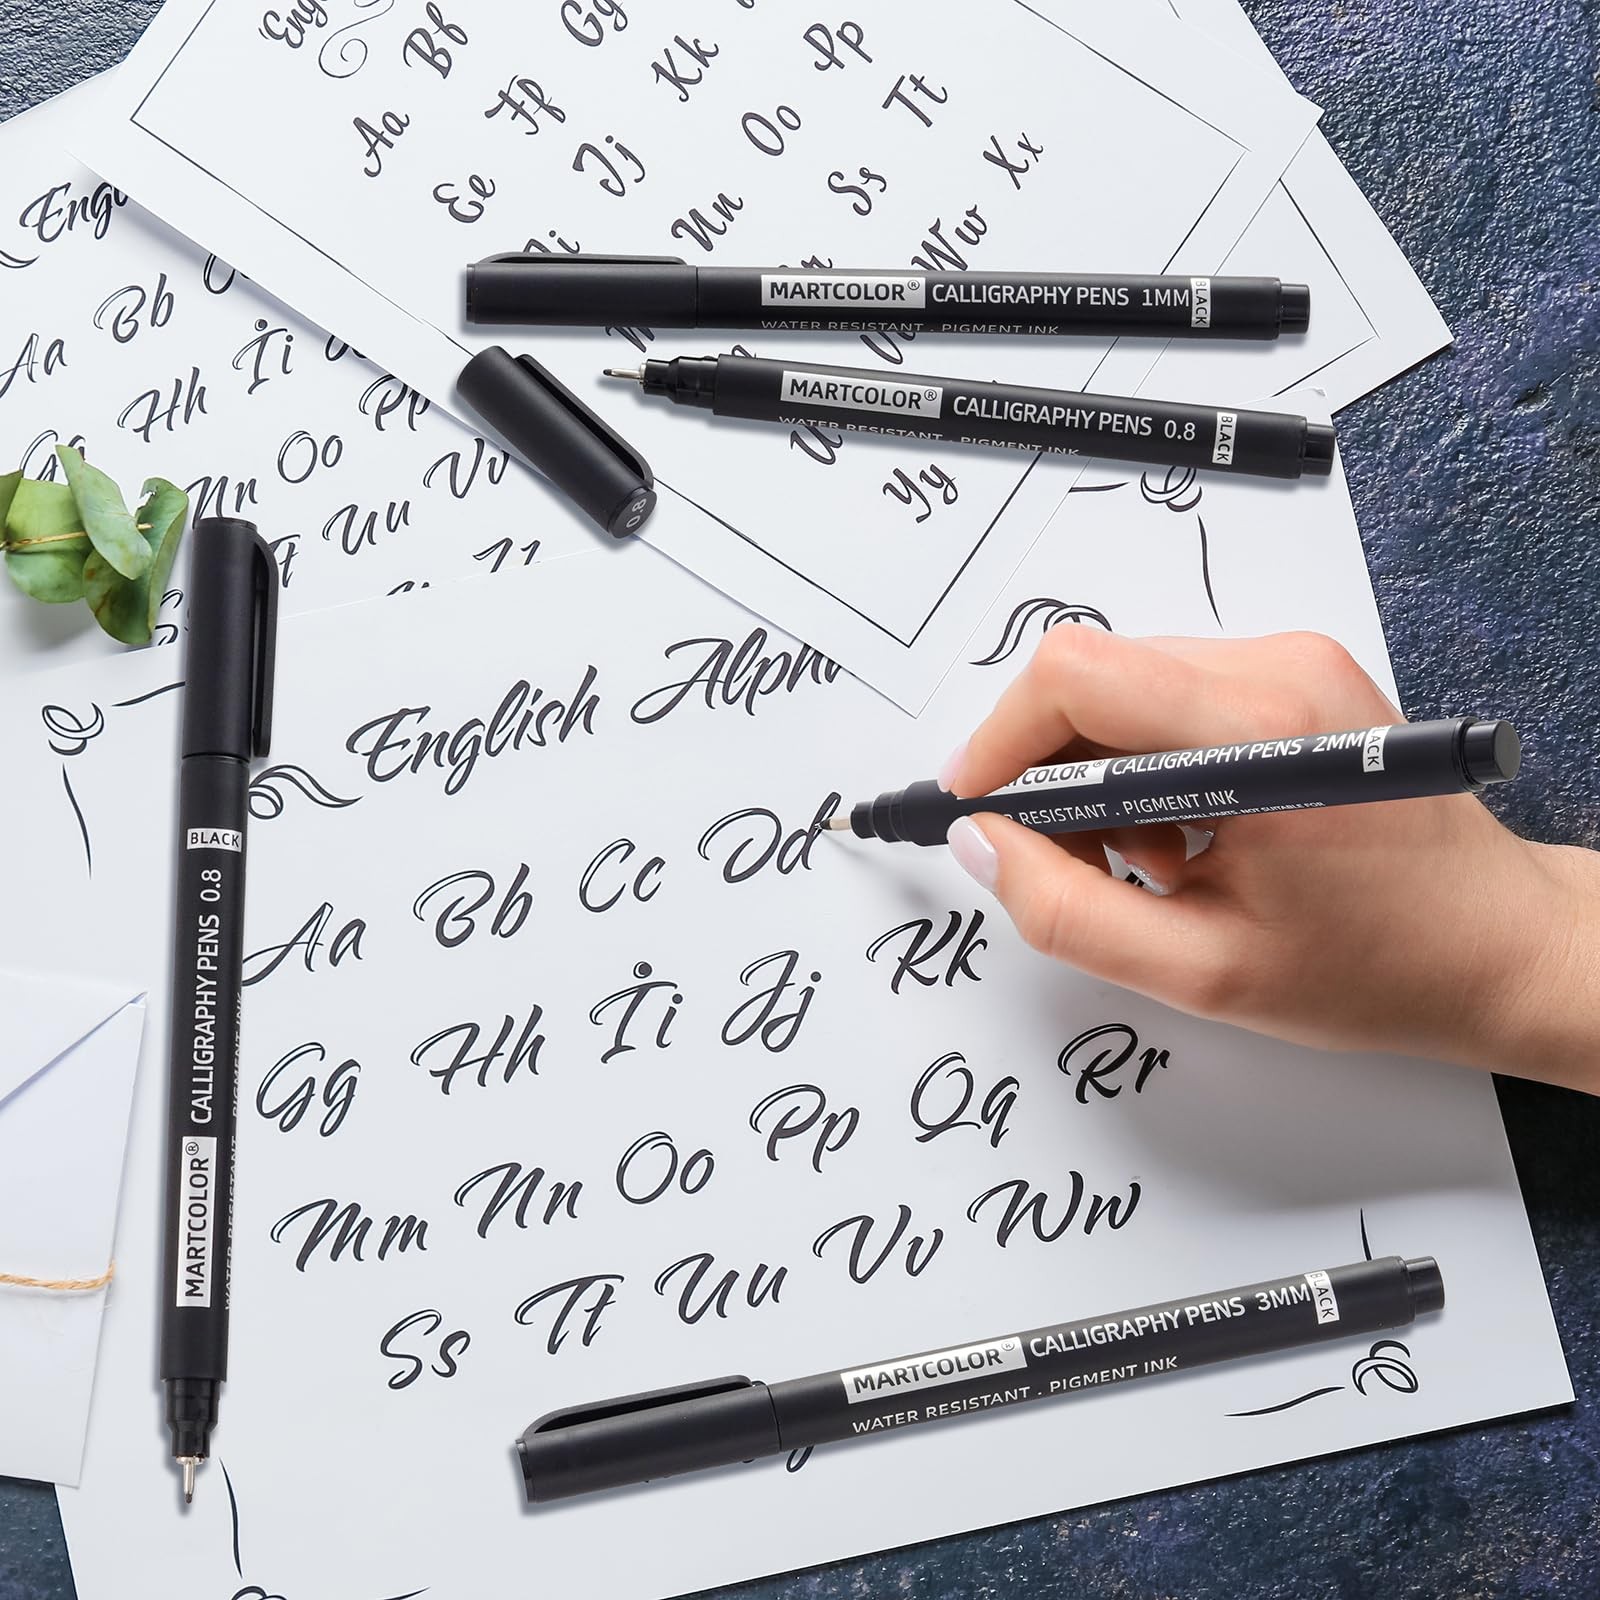 Aa Bb
Ee Ff Gg
Jj Kk
Nn Oo Pp
Ss Tt
Ww Xx
Yy
MARTCOLOR® CALLIGRAPHY PENS 1MM BLACK
WATER RESISTANT . PIGMENT INK
MARTCOLOR® CALLIGRAPHY PENS 0.8 BLACK
WATER RESISTANT . PIGMENT INK
0.8
Aa Bb
Gg Hh İi
Nn Oo Pp
Tt Uu Vv
MARTCOLOR® CALLIGRAPHY PENS 0.8 BLACK
WATER RESISTANT . PIGMENT INK
English
Aa Bb Cc Dd
Gg Hh İi Jj Kk
Mm Nn Oo Pp Qq Rr
Ss Tt Uu Vv Ww
CALLIGRAPHY PENS 2MM BLACK
RESISTANT . PIGMENT INK
CONTAINS SMALL PARTS. NOT SUITABLE FOR
MARTCOLOR® CALLIGRAPHY PENS 3MM BLACK
WATER RESISTANT . PIGMENT INK